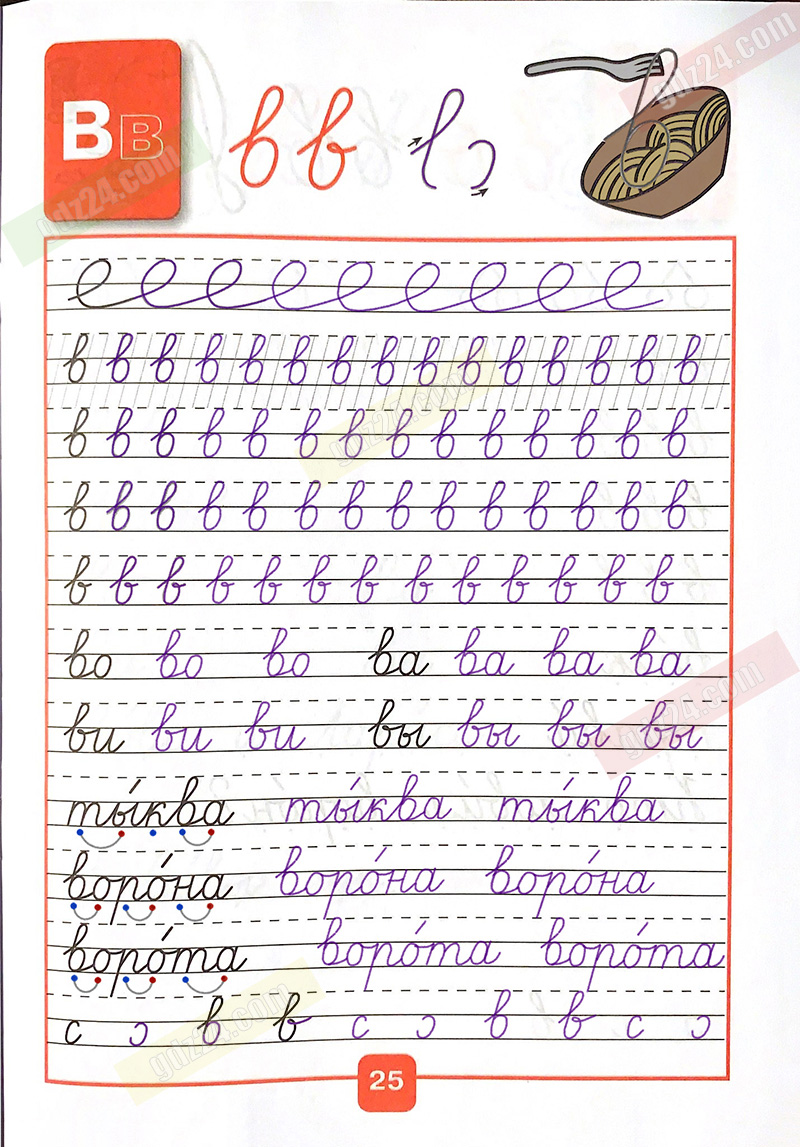 gdz24.com
В В в в
gdz24.com
в в в в в в в в в в в в в в в
в в в в в в в в в в в в в в
gdz24.com
в в в в в в в в в в в в в в
в в в в в в в в в в в в в
во во во ва ва ва ва
gdz24.com
ви ви ви вы вы вы вы
ты́ква ты́ква ты́ква
воро́на воро́на воро́на
воро́та воро́та воро́та
с ɔ в в с ɔ в в с ɔ
gdz24.com
25